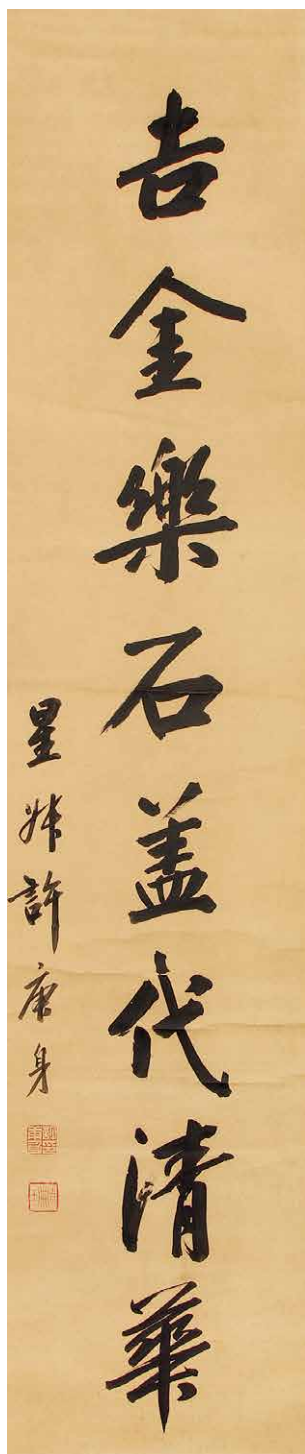 吉金樂石蓋代清華
星叔許庚身